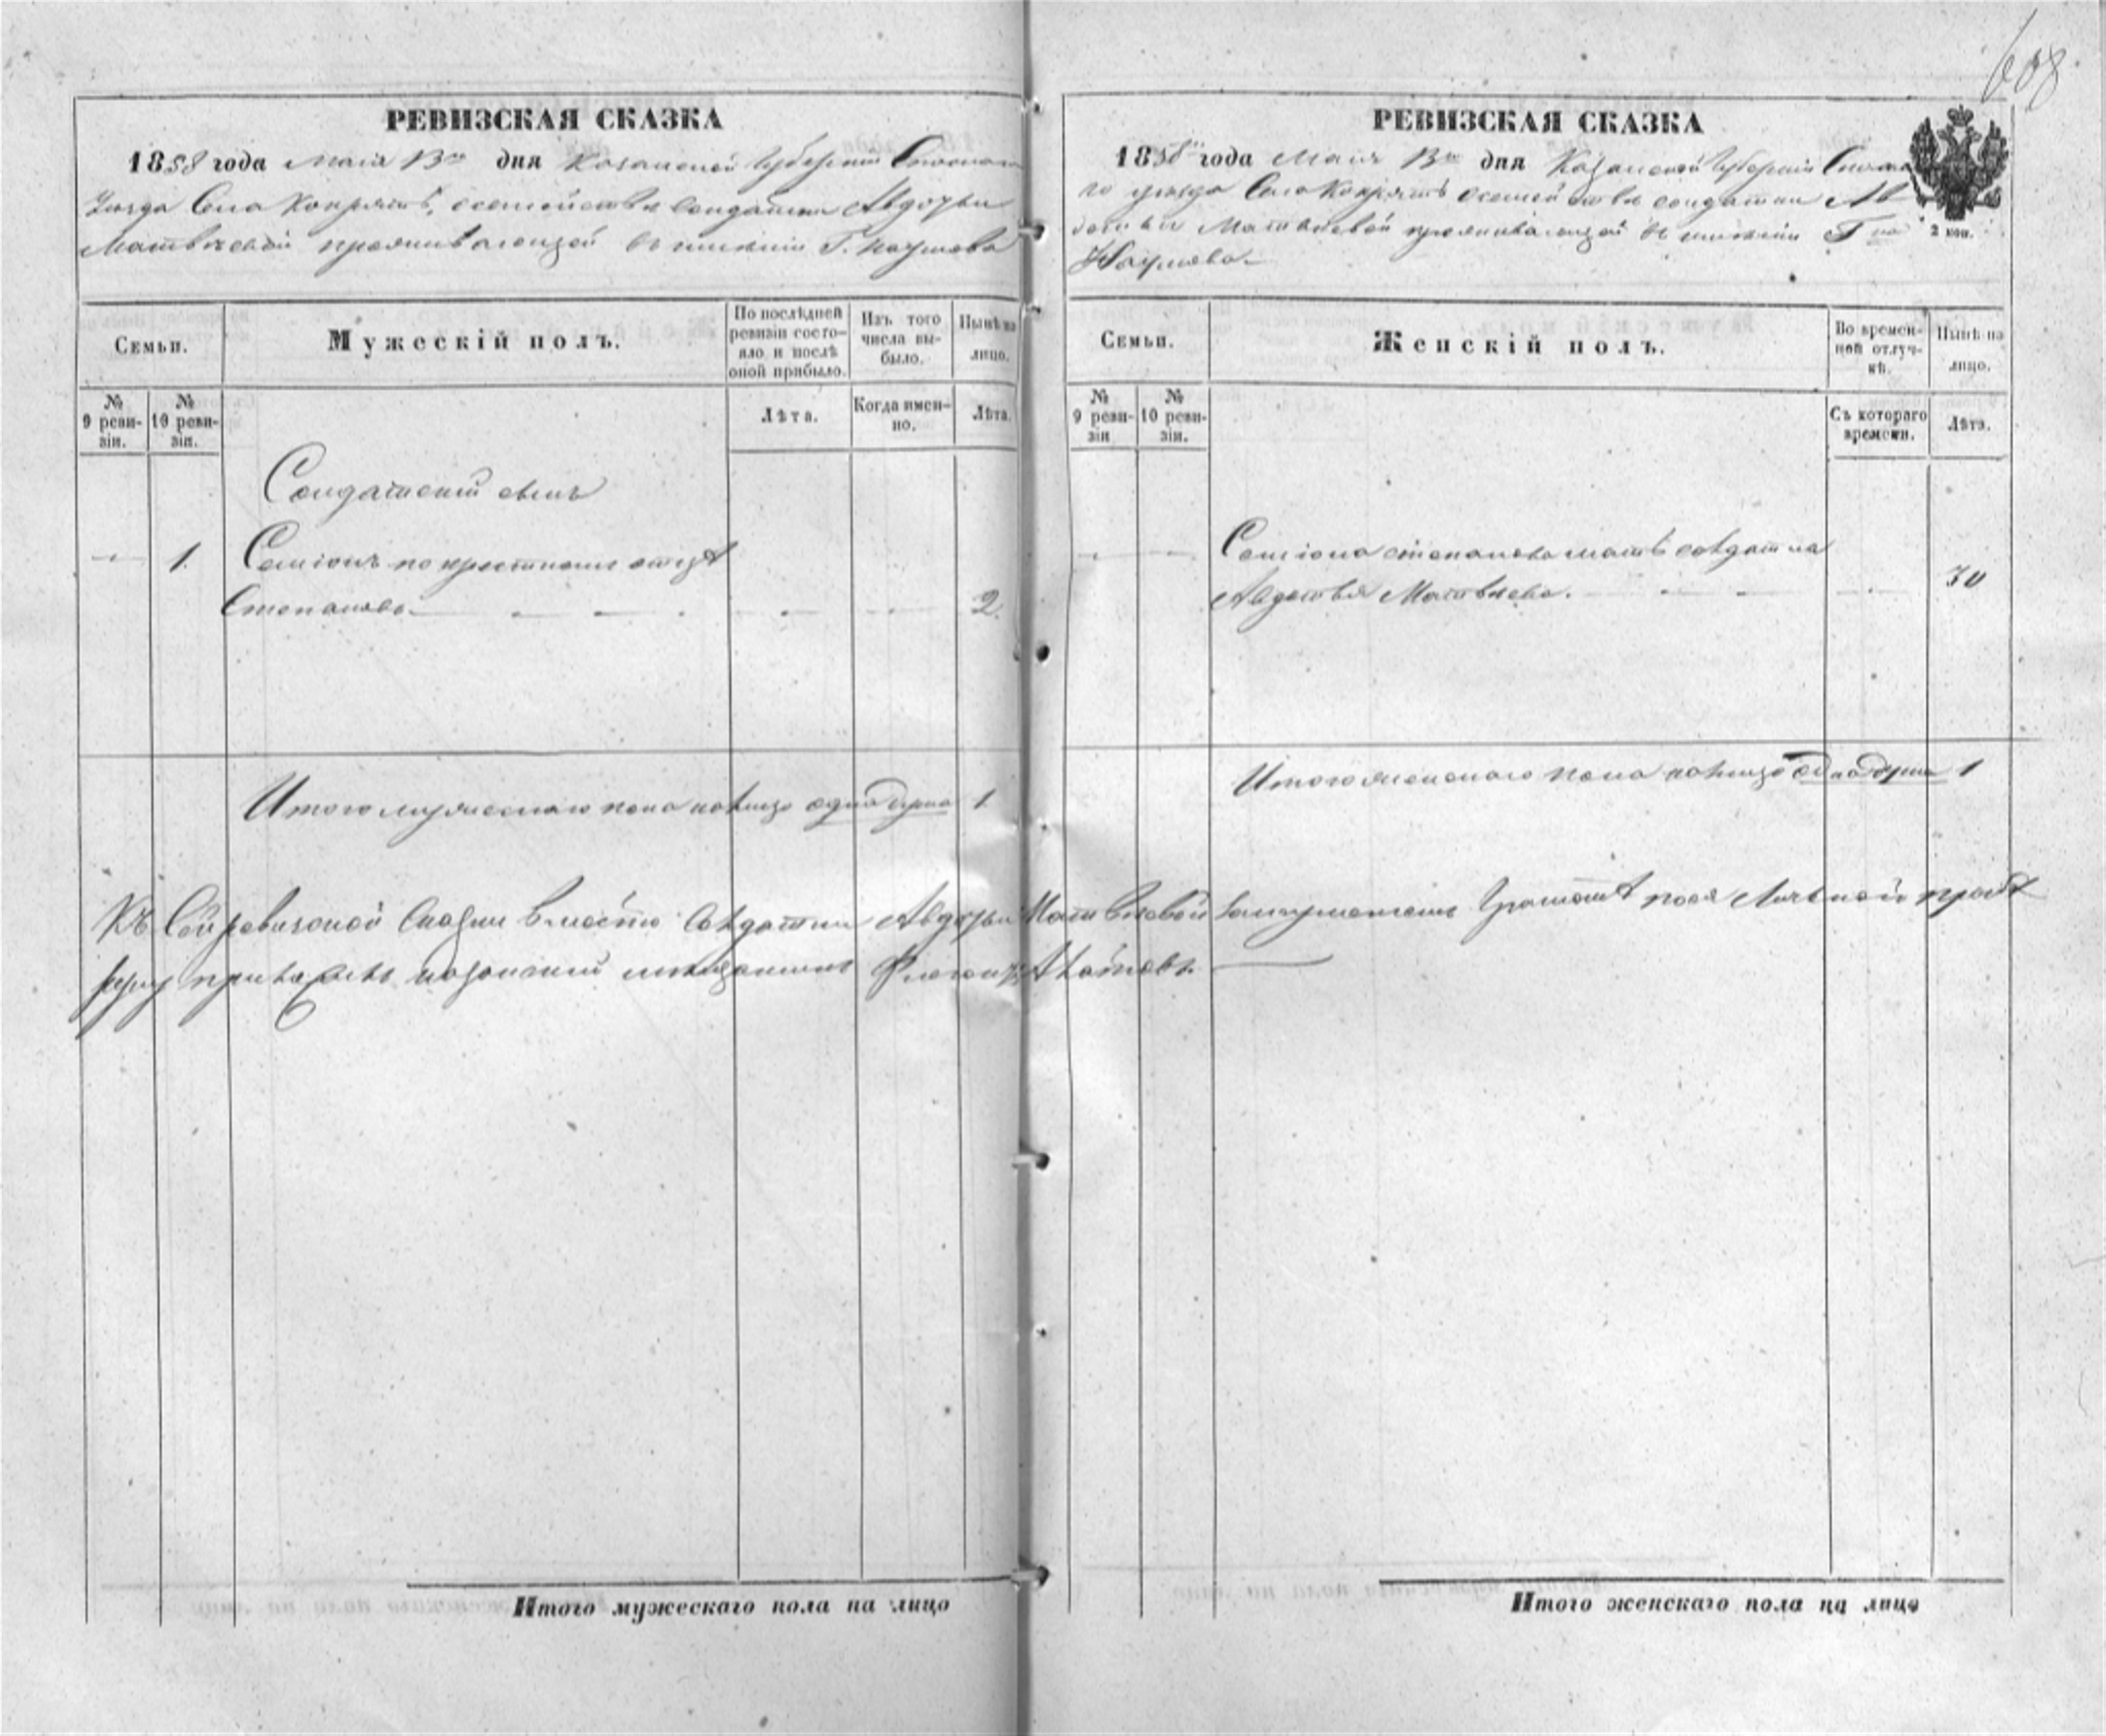 608
РЕВИЗСКАЯ СКАЗКА
1858 года Маія 13го дня Казанской Губерніи Спаскаго
Уезда Села Кокрять, о семействе Солдатки Авдотьи
Матвеевой проживающей въ имении Г. Наумова
Семьи.
Мужескій полъ.
По послѣдней ревизіи состояло и послѣ оной прибыло.
Изъ того числа выбыло.
Нынѣ на лицо.
№ 9 ревизіи.
№ 10 ревизіи.
Лѣта.
Когда именно.
Лѣта.
Солдатский сынъ
1. Семіонъ по крестному отцу
Степановъ 2.
Итого мужескаго пола налицо одна душа 1
РЕВИЗСКАЯ СКАЗКА
1858го года Маія 13го дня Казанской Губерніи Спаска
го уезда Села Кокрять о семействе солдатки Ав
дотьи Матвеевой проживающей въ имении Гна
Наумова
2 коп.
Семьи.
Женскій полъ.
Во временной отлучкѣ.
Нынѣ на лицо.
№ 9 ревизіи
№ 10 ревизіи.
Съ котораго времени.
Лѣта.
Семіона степанова мать солдатка
Авдотья Матвеева. 30
Итого женскаго пола налицо одна душа 1
Къ Сей ревизской Сказки вместо Солдатки Авдотьи Матвеевой по Личной прозь
руку приложилъ казанский мещанинъ
Итого мужескаго пола на лицо
Итого женскаго пола на лицо